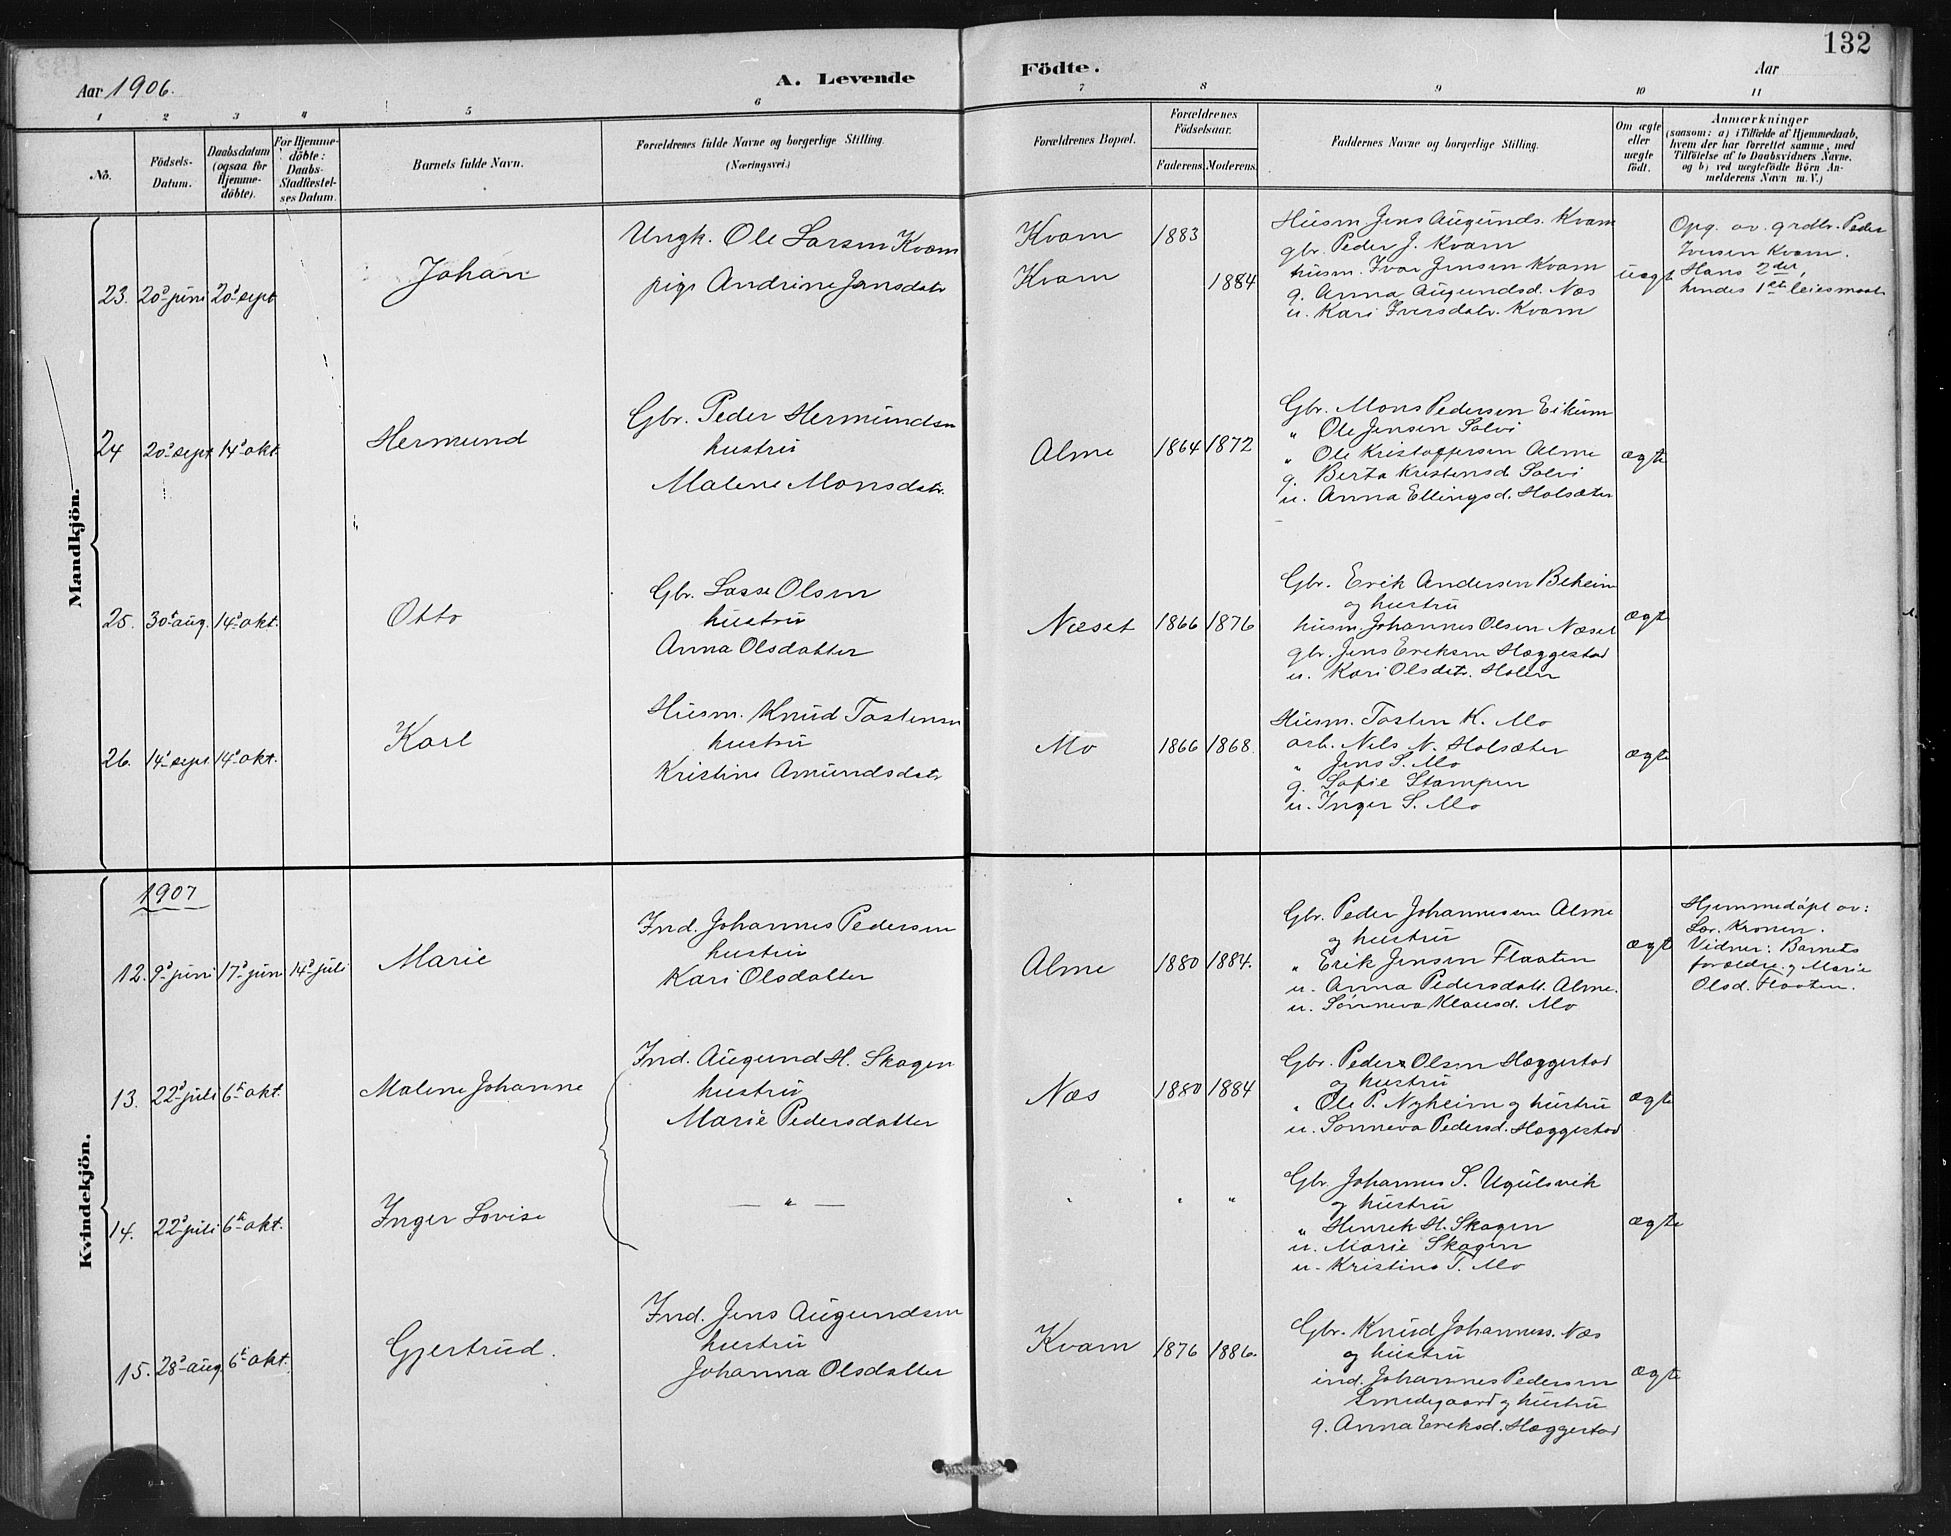 132
Aar 1906.
A. Levende Födte.
Aar
1 2 3 4 5 6 7 8 9 10 11
No.
Födsels-Datum.
Daabsdatum (ogsaa for Hjemme-döbte).
For Hjemme-döbte: Daabs-Stadfæstel-ses Datum.
Barnets fulde Navn.
Forældrenes fulde Navne og borgerlige Stilling.
(Næringsvei.)
Forældrenes Bopæl.
Forældrenes Födselsaar.
Faderens. Moderens.
Faddernes Navne og borgerlige Stilling.
Om ægte eller uægte födt.
Anmærkninger
(saasom: a) i Tilfælde af Hjemmedaab, hvem der har forrettet samme, med Tilföielse af to Daabsvidners Navne, og b) ved uægtefödte Börn An-melderens Navn m. V.)
Mandkjön.
23. 20d juni 20d sept
Johan
Ungk. Ole Larsen Kvam
pige Andrine Jensdatr
Kvam 1883
Kvam 1884
Husm. Jens Augunds. Kvam
gbr. Peder J. Kvam
husm. Ivar Jensen Kvam
g. Anna Augundsd. Næs
u. Kari Iversdatr. Kvam
uægt
Opg. av. grdbr. Peder
Iversen Kvam.
Hans 2det,
hendes 1ste leiermaal
24 20d sept 14d okt
Hermund
Gbr. Peder Hermundsen
hustru
Malene Monsdatr.
Alme 1864 1872
Gbr. Mons Pedersen Eikum
" Ole Jensen Solvi
" Ole Kristoffersen Alme
g. Berta Kristensd. Solvi
u. Anna Ellingsd. Holsæter
ægte
25. 30t aug. 14d okt.
Otto
Gbr. Lasse Olsen
hustru
Anna Olsdatter
Næset 1866 1876
Gbr. Erik Andersen Beheim
og hustru
husm. Johannes Olsen Næset
gbr. Jens Eriksen Hæggestad
u. Kari Olsdatr. Holen
ægte
26. 14d sept 14d okt.
Karl
Husm. Knud Tostensen
hustru
Kristine Amundsdatr
Mo 1866 1868.
Husm. Tosten K. Mo
arb. Nils N. Holsæter
" Jens S. Mo
g. Sofie Stampen
u. Inger S. Mo
ægte
Kvindekjön.
1907
12. 9d juni 17d juni 14d juli
Marie
Ind. Johannes Pedersen
hustru
Kari Olsdatter
Alme 1880 1884.
Gbr. Peder Johannesen Alme
og hustru
" Erik Jensen Flaaten
u. Anna Pedersdatt. Alme.
u. Sønneva Klausd. Mo
ægte
Hjemmedøpt av:
Lær. Kronen.
Vidner: Barnets
forældre og Marie
Olsd. Flaaten.
13. 22d juli 6t okt.
Malene Johanne
Ind. Augund H. Skagen
hustru
Marie Pedersdatter
Næs 1880 1884
Gbr. Peder Olsen Hæggestad
og hustru
" Ole P. Nyheim og hustru
u. Sønneva Pedersd. Hæggestad
ægte
14. 22d juli 6t okt.
Inger Lovise
— " —
" " "
Gbr. Johannes S. Ugulsvik
og hustru
" Henrik H. Skagen
u. Marie Skagen
u. Kristine T. Mo
ægte
15. 28d aug 6t okt.
Gjertrud.
Ind. Jens Augundsen
hustru
Johanna Olsdatter
Kvam 1876 1886.
Gbr. Knud Johanness. Næs
og hustru
ind. Johannes Pedersen
Smedegaard og hustru
g. Anna Eriksd. Hæggestad
ægte